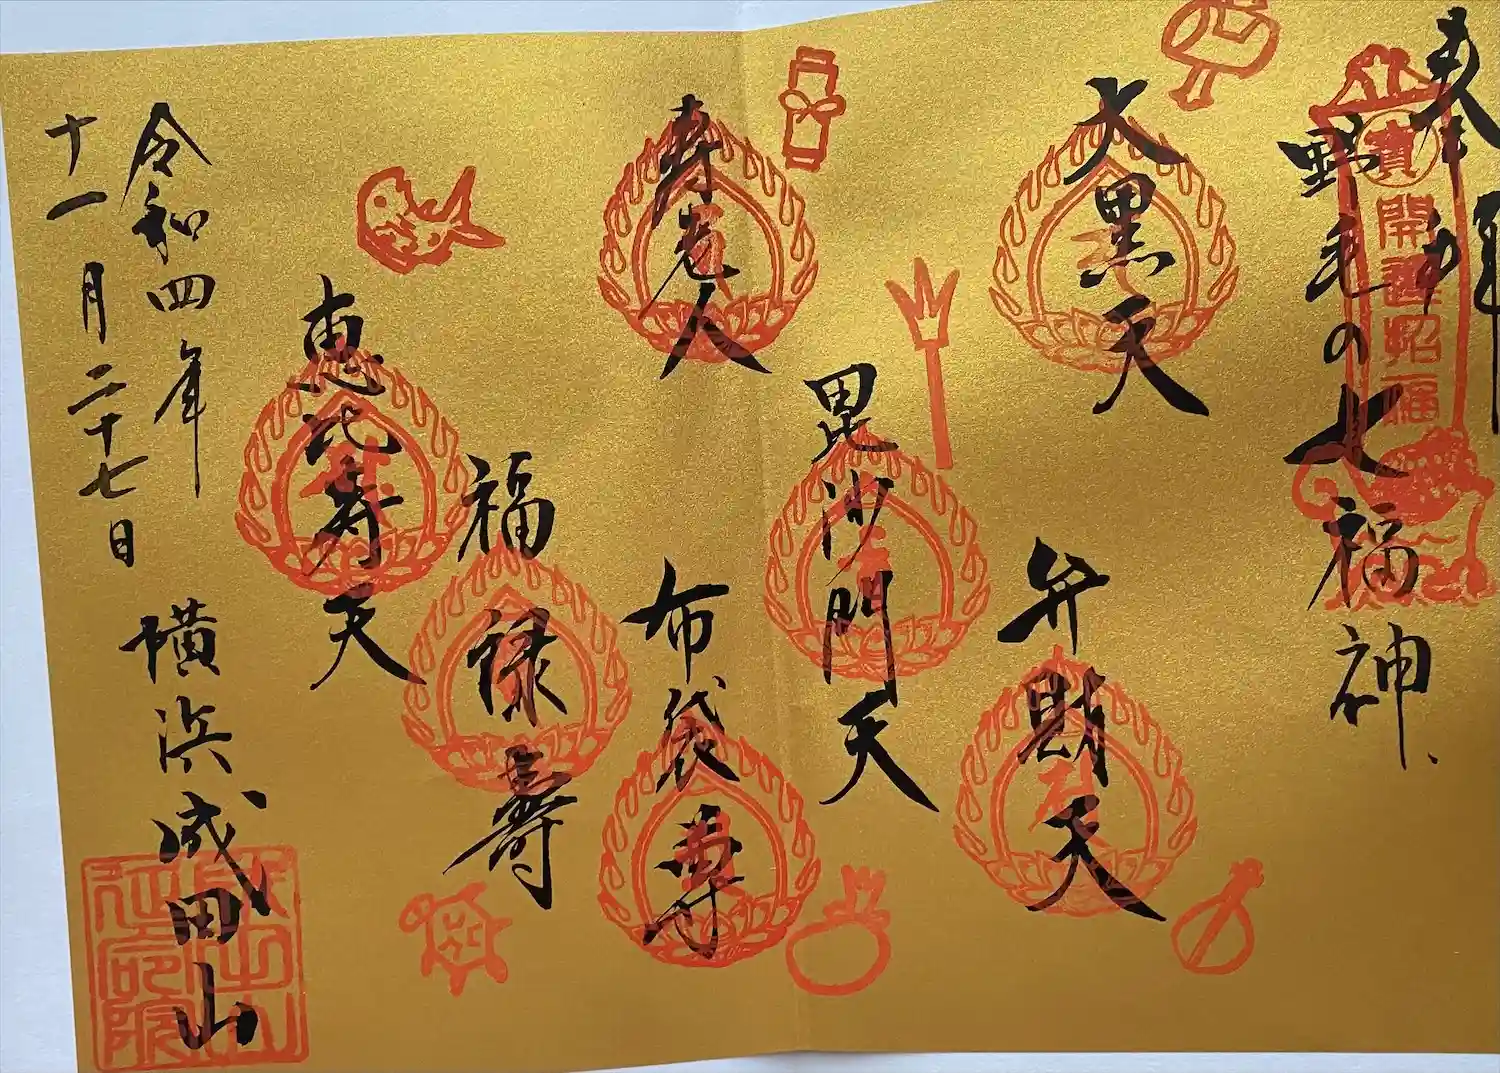 奉拝
野毛の七福神
寳
開運招福
大黒天
弁財天
毘沙門天
寿老人
布袋尊
福禄寿
恵比寿天
令和四年
十一月二十七日
横浜成田山